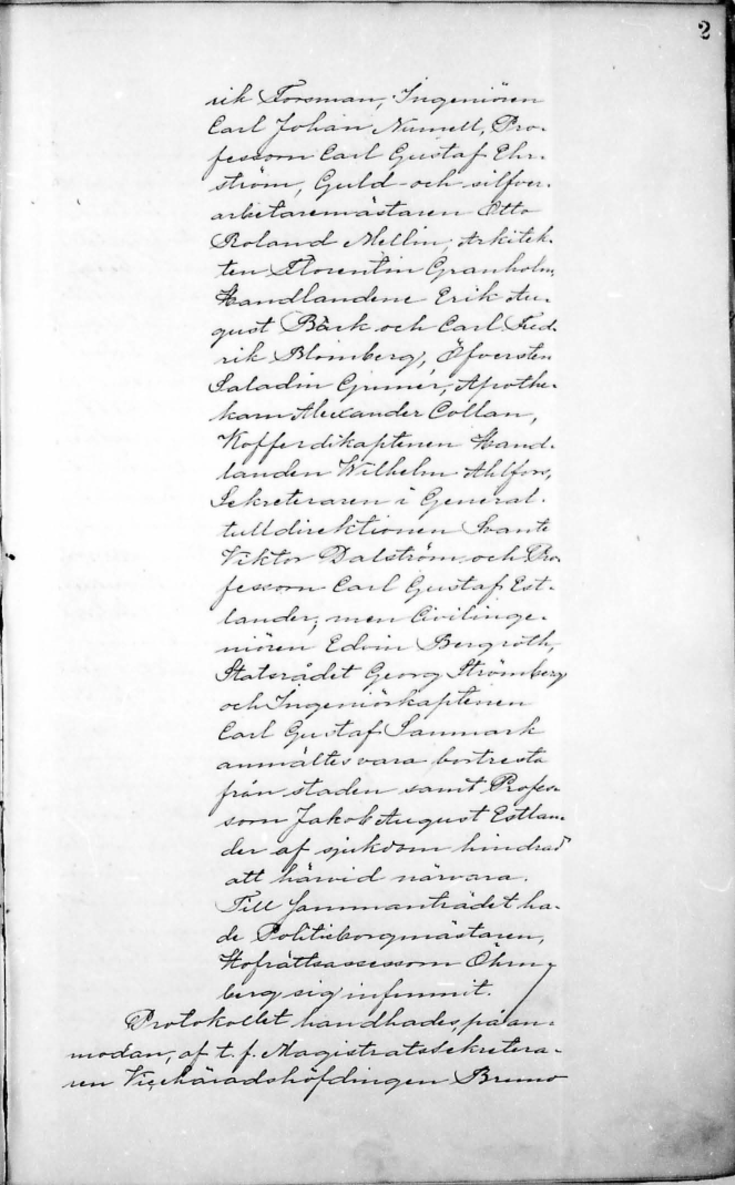 2
rik Forsman, Ingeniören
Carl Johan Nummell, Pro-
fessorn Carl Gustaf Ehr-
ström, Guld- och silfver-
arbetaremästaren Otto
Roland Mellin, Arkitek-
ten Florentin Granholm,
Handlandene Erik Au-
gust Bäck och Carl Fred-
rik Blomberg, Öfversten
Saladin Grenér, Apothe-
karn Alexander Collan,
Kofferdikaptenen Hand-
landen Wilhelm Ahlfors,
Sekreteraren i General-
tulldirektionen Svante
Viktor Dalström och Pro-
fessorn Carl Gustaf Est-
lander; men Civilinge-
niören Edvin Bergroth,
Statsrådet Georg Strömberg
och Ingeniörkaptenen
Carl Gustaf Sanmark
anmältes vara bortresta
från staden samt Profes-
sorn Jakob August Estlan-
der af sjukdom hindrad
att härvid närvara.
Till sammanträdet ha-
de Politieborgmästaren,
Hofrättsassessorn Öhrn-
berg sig infunnit.
Protokollet handhades, på an-
modan, af t. f. Magistratssekretera-
ren Vicehäradshöfdingen Bruno